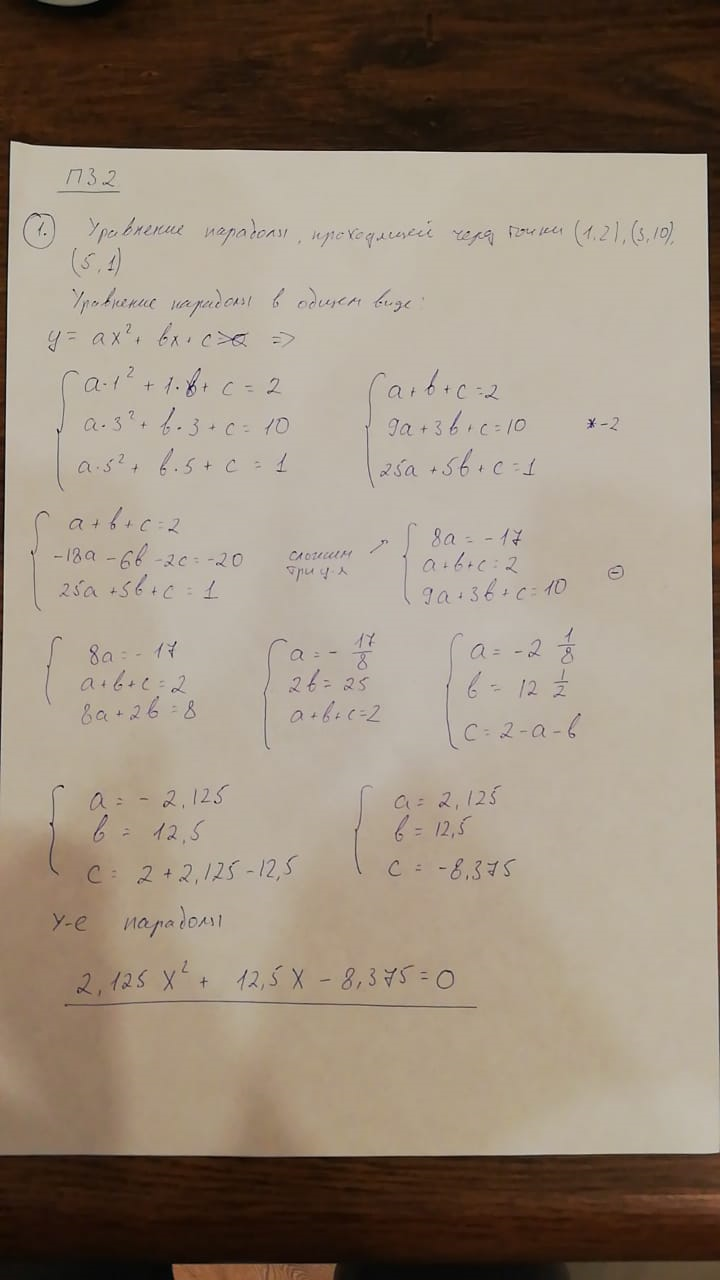 ПЗ 2
1. Уравнение параболы, проходящей через точки (1,2), (3,10),
(5,1)
Уравнение параболы в общем виде:
y = ax² + bx + c =>
{ a·1² + 1·b + c = 2
a·3² + b·3 + c = 10
a·5² + b·5 + c = 1
{ a+b+c=2
9a+3b+c=10 *-2
25a+5b+c=1
{ a+b+c=2
-18a-6b-2c=-20
25a+5b+c=1
сложим
три ур-я ↗
{ 8a=-17
a+b+c=2
9a+3b+c=10 ⊖
{ 8a=-17
a+b+c=2
8a+2b=8
{ a=-17/8
2b=25
a+b+c=2
{ a=-2 1/8
b=12 1/2
c=2-a-b
{ a=-2,125
b=12,5
c=2+2,125-12,5
{ a=2,125
b=12,5
c=-8,375
У-е параболы
2,125 x² + 12,5x - 8,375=0